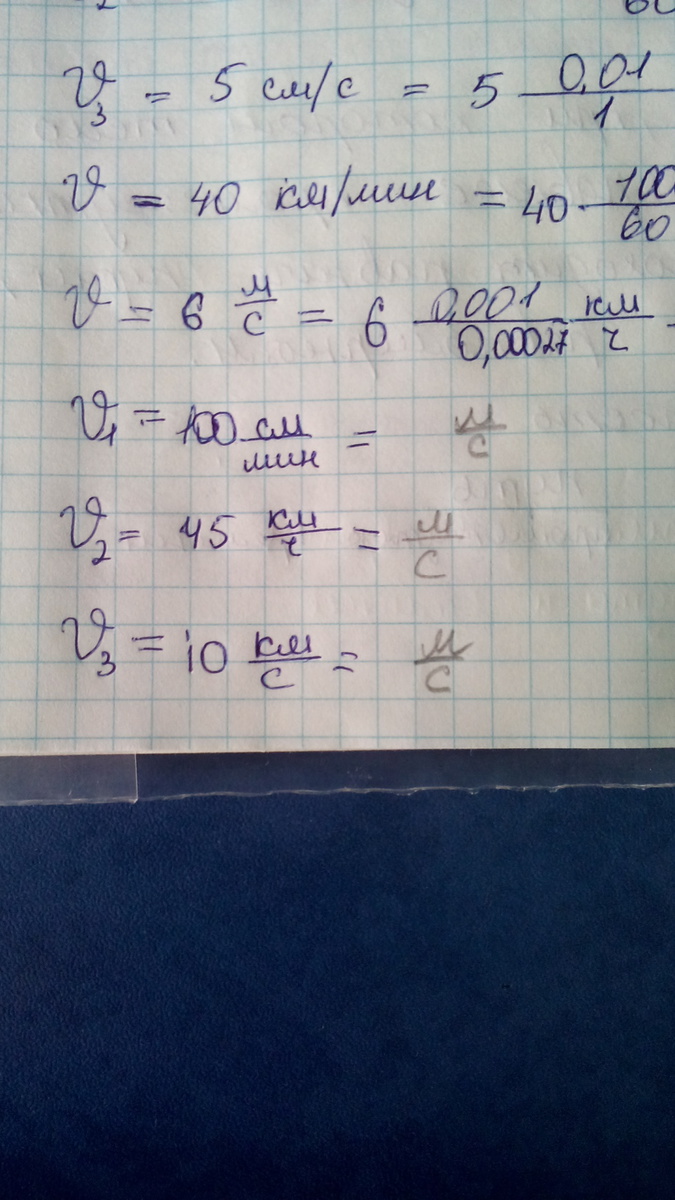 60
V₃ = 5 см/с = 5 0,01/1
V = 40 км/мин = 40 · 100/60
V = 6 м/с = 6 0,001/0,00027 км/ч
V₁ = 100 см/мин = м/с
V₂ = 45 км/ч = м/с
V₃ = 10 км/с = м/с